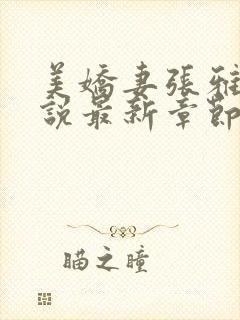 美嬌妻張雅
說最新章節
瞄之瞳